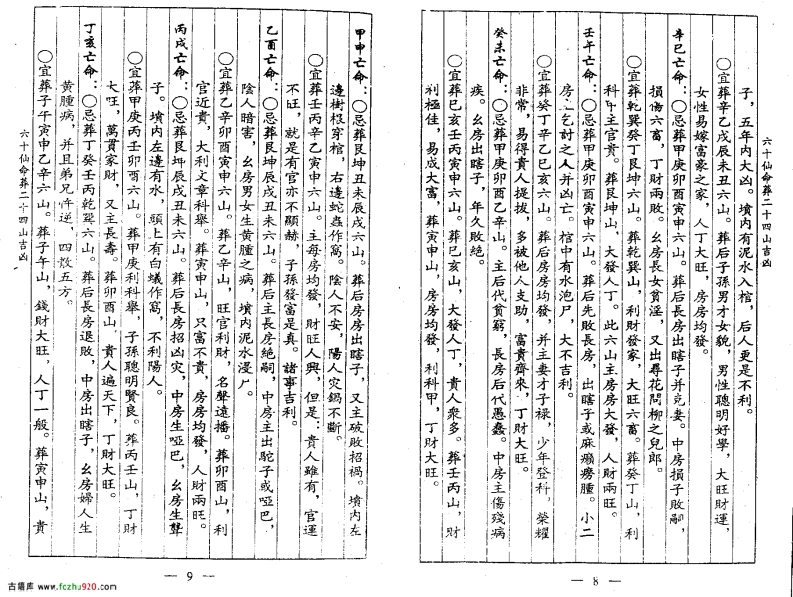 六十仙命葬二十四山吉凶
子，五年內大凶。墳內有泥水入棺，后人更是不利。
◯宜葬辛乙戌辰未丑六山。葬后子孫男才女貌，男性聰明好學，大旺財運，
女性易嫁富豪之家，人丁大旺，房房均發。
辛巳亡命：◯忌葬甲庚卯酉寅申六山。葬后長房出瞎子并克妻。中房損子敗嗣，
損傷六畜，丁財兩敗。幺房長女貧淫，又出尋花問柳之兒郎。
◯宜葬乾巽癸丁艮坤六山。葬乾巽山，利財發家，大旺六畜。葬癸丁山，利
科甲主官貴。葬艮坤山，大發人丁。此六山主房房大發，人財兩旺。
壬午亡命：◯忌葬甲庚卯酉寅申六山。葬后先敗長房，出瞎子或麻癩癆腫。小二
房乞討之人并凶亡。棺中有水泡尸，大不吉利。
◯宜葬癸丁辛乙巳亥六山。葬后房房均發，并主妻才子祿，少年登科，榮耀
非常，易得貴人提拔，多被他人支助，富貴齊來，丁財大旺。
癸未亡命：◯忌葬甲庚卯酉乙辛山。主后代貧窮，長房后代愚蠢。中房主傷殘病
疾。幺房出瞎子，年久敗絕。
◯宜葬巳亥壬丙寅申六山。葬巳亥山，大發人丁，貴人衆多。葬壬丙山，財
利極佳，易成大富，葬寅申山，房房均發，利科甲，丁財大旺。
— 8 —
甲申亡命：◯忌葬艮坤丑未辰戌六山。葬后房房出瞎子，又主破敗招禍。墳內左
邊樹根穿棺，右邊蛇蟲作窩。陰人不安，陽人灾鍋不斷。
◯宜葬壬丙辛乙寅申六山。主每房均發，財旺人興，但是：貴人雖有，官運
不旺，就是有官亦不顯赫，子孫發富是真。諸事吉利。
乙酉亡命：◯忌葬艮坤辰戌丑未六山。葬后主長房絕嗣，中房主出駝子或啞巴，
陰人暗害，幺房男女生黃腫之病，墳內泥水浸尸。
◯宜葬乙辛卯酉寅申六山。葬乙辛山，旺官利財，名聲遠播。葬卯酉山，利
官近貴，大利文章科舉。葬寅申山，只富不貴，房房均發，人財兩旺。
丙戌亡命：◯忌葬艮坤辰戌丑未六山。葬后長房招凶灾，中房生啞巴，幺房生聾
子。墳內左邊有水，頭上有白蟻作窩，不利陽人。
◯宜葬甲庚丙壬卯酉六山。葬甲庚利科舉，子孫聰明賢良。葬丙壬山，丁財
大旺，萬貫家財，又主長壽。葬卯酉山，貴人遍天下，丁財大旺。
丁亥亡命：◯忌葬丁癸壬丙乾巽六山。葬后長房退敗，中房出瞎子，幺房婦人生
黃腫病，并且弟兄忤逆，四散五方。
◯宜葬子午寅申乙辛六山。葬子午山，錢財大旺，人丁一般。葬寅申山，貴
六十仙命葬二十四山吉凶
— 9 —
古籍库 www.fczhu920.com